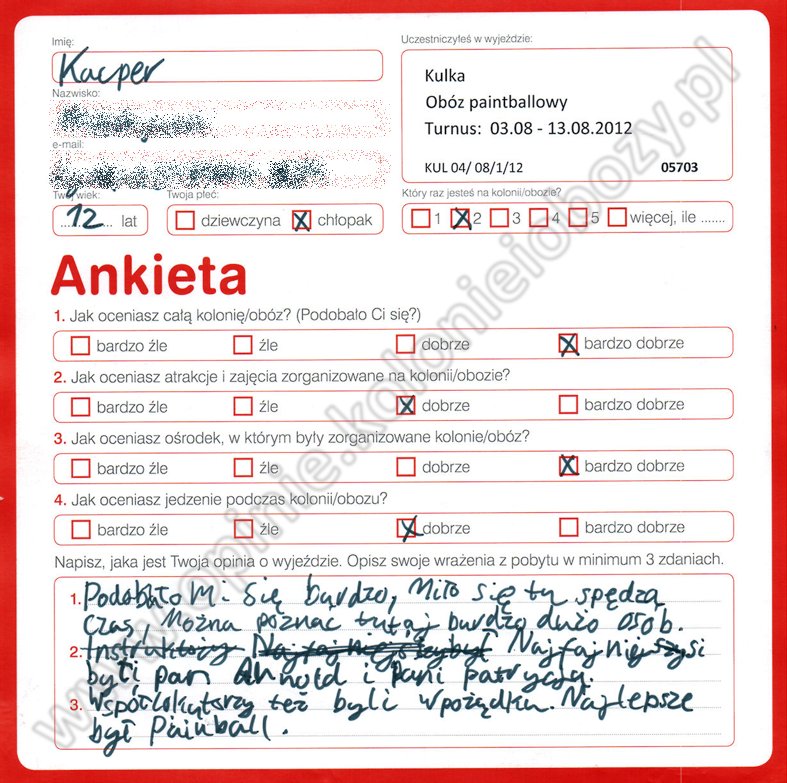 Imię:
Kacper
Nazwisko:
e-mail:
Twój wiek:
12 lat
Twoja płeć:
dziewczyna X chłopak
Uczestniczyłeś w wyjeździe:
Kulka
Obóz paintballowy
Turnus: 03.08 - 13.08.2012
KUL 04/ 08/1/12 05703
Który raz jesteś na kolonii/obozie?
1 X 2 3 4 5 więcej, ile .......
Ankieta
1. Jak oceniasz całą kolonię/obóz? (Podobało Ci się?)
bardzo źle źle dobrze X bardzo dobrze
2. Jak oceniasz atrakcje i zajęcia zorganizowane na kolonii/obozie?
bardzo źle źle X dobrze bardzo dobrze
3. Jak oceniasz ośrodek, w którym były zorganizowane kolonie/obóz?
bardzo źle źle dobrze X bardzo dobrze
4. Jak oceniasz jedzenie podczas kolonii/obozu?
bardzo źle źle X dobrze bardzo dobrze
Napisz, jaka jest Twoja opinia o wyjeździe. Opisz swoje wrażenia z pobytu w minimum 3 zdaniach.
1. Podobało M. Się bardzo, Miło się tu spędza
czas, Można poznać tutaj bardzo dużo osób.
2. Instruktorzy Najfajniejszysi
byli pan Arnold i Pani patrycja.
3. Współlokatorzy też byli wpożądku. Najlepsze
był Painball.
www.opinie.kolonieiobozy.pl